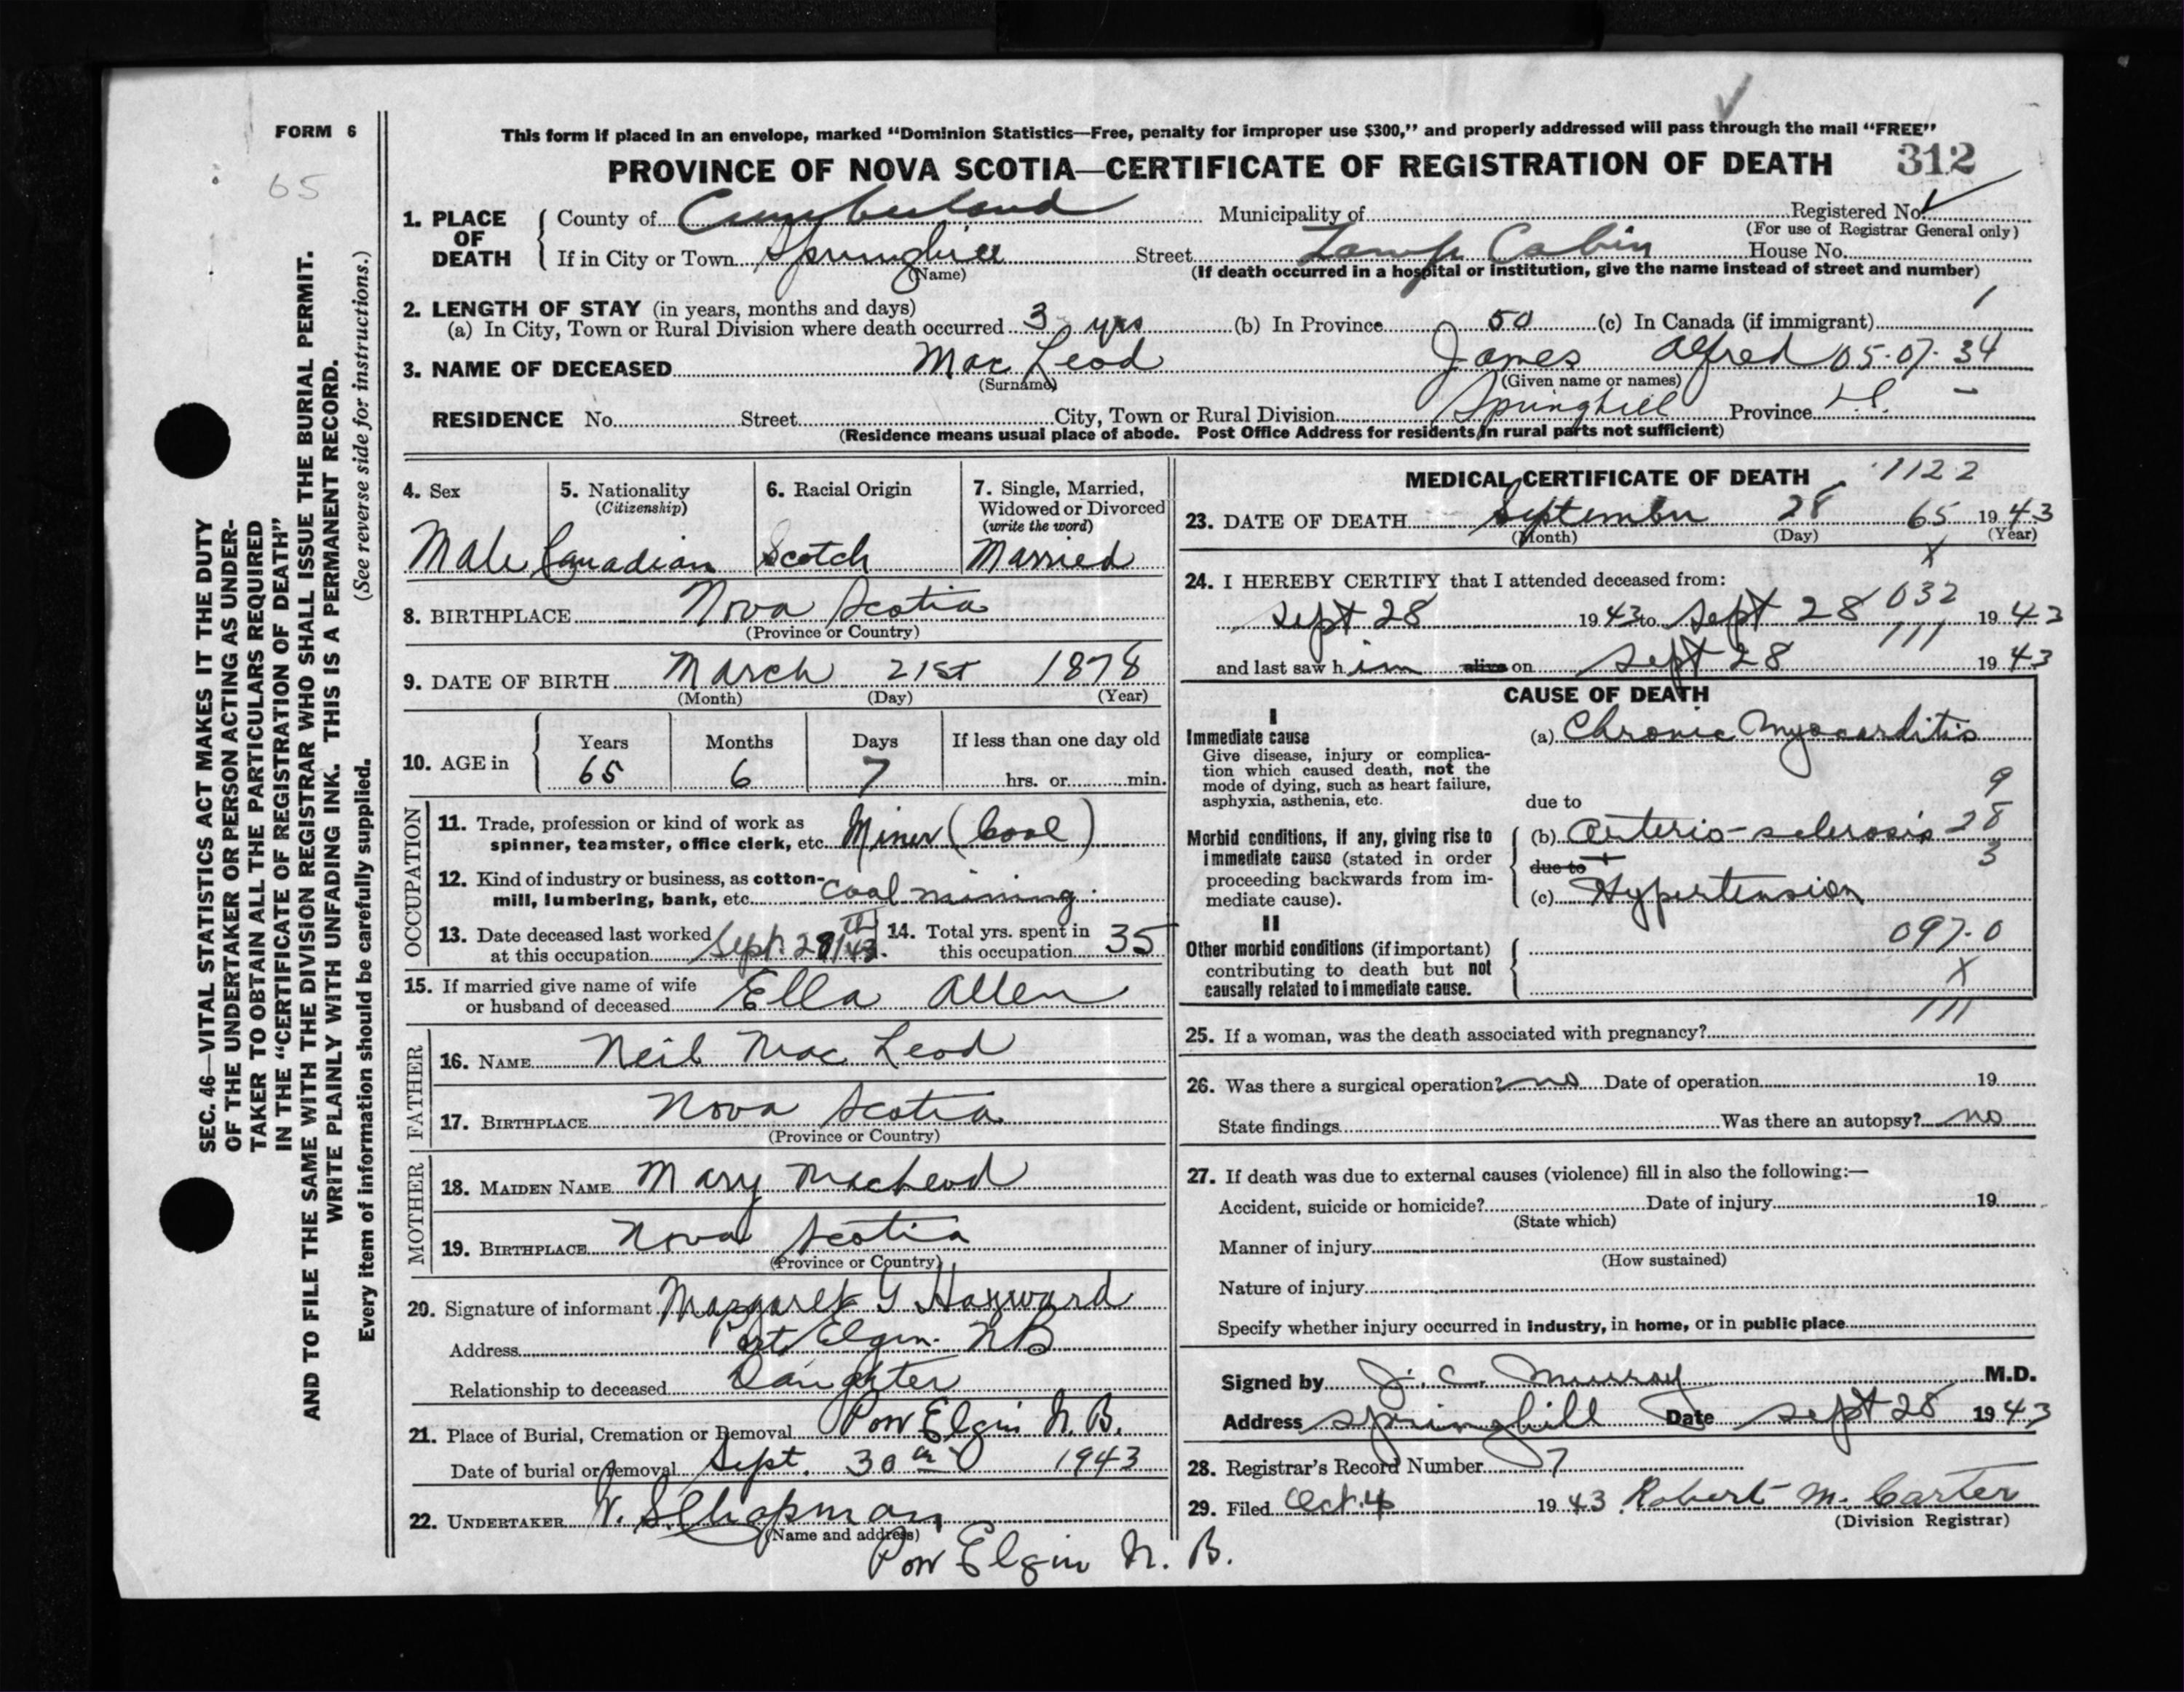 FORM 6
65
SEC. 46—VITAL STATISTICS ACT MAKES IT THE DUTY
OF THE UNDERTAKER OR PERSON ACTING AS UNDER-
TAKER TO OBTAIN ALL THE PARTICULARS REQUIRED
IN THE "CERTIFICATE OF REGISTRATION OF DEATH"
AND TO FILE THE SAME WITH THE DIVISION REGISTRAR WHO SHALL ISSUE THE BURIAL PERMIT.
WRITE PLAINLY WITH UNFADING INK. THIS IS A PERMANENT RECORD.
Every item of information should be carefully supplied. (See reverse side for instructions.)
This form if placed in an envelope, marked "Dominion Statistics—Free, penalty for improper use $300," and properly addressed will pass through the mail "FREE"
PROVINCE OF NOVA SCOTIA—CERTIFICATE OF REGISTRATION OF DEATH 312
1. PLACE OF DEATH County of Cumberland Municipality of Registered No.
(For use of Registrar General only)
If in City or Town Springhill Street Lamp Cabin House No.
(Name) (If death occurred in a hospital or institution, give the name instead of street and number)
2. LENGTH OF STAY (in years, months and days) 1
(a) In City, Town or Rural Division where death occurred 3 yrs (b) In Province 50 (c) In Canada (if immigrant)
3. NAME OF DECEASED Mac Leod James Alfred 05-07-34
(Surname) (Given name or names)
RESIDENCE No. Street City, Town or Rural Division Springhill Province
(Residence means usual place of abode. Post Office Address for residents in rural parts not sufficient)
4. Sex 5. Nationality 6. Racial Origin 7. Single, Married,
(Citizenship) Widowed or Divorced
(write the word)
Male Canadian Scotch Married
8. BIRTHPLACE Nova Scotia
(Province or Country)
9. DATE OF BIRTH March 21st 1878
(Month) (Day) (Year)
10. AGE in Years Months Days If less than one day old
65 6 7 hrs. or min.
OCCUPATION
11. Trade, profession or kind of work as
spinner, teamster, office clerk, etc. Miner (Coal)
12. Kind of industry or business, as cotton-
mill, lumbering, bank, etc. Coal mining.
13. Date deceased last worked
at this occupation Sept. 28th/43.
14. Total yrs. spent in
this occupation 35
15. If married give name of wife
or husband of deceased Ella Allen
FATHER
16. NAME Neil Mac Leod
17. BIRTHPLACE Nova Scotia
(Province or Country)
MOTHER
18. MAIDEN NAME Mary MacLeod
19. BIRTHPLACE Nova Scotia
(Province or Country)
20. Signature of informant Margaret G Hayward
Address Port Elgin. NB
Relationship to deceased Daughter
21. Place of Burial, Cremation or Removal Port Elgin N.B.
Date of burial or removal Sept. 30th 1943
22. UNDERTAKER V. S. Chapman
(Name and address)
Port Elgin N. B.
MEDICAL CERTIFICATE OF DEATH 1122
23. DATE OF DEATH September 28 65 1943
(Month) (Day) (Year)
X
24. I HEREBY CERTIFY that I attended deceased from:
Sept 28 1943 to Sept 28 032 1943
111
and last saw him alive on Sept 28 1943
CAUSE OF DEATH
I
Immediate cause (a) Chronic Myocarditis
Give disease, injury or complica-
tion which caused death, not the
mode of dying, such as heart failure,
asphyxia, asthenia, etc. due to 9
Morbid conditions, if any, giving rise to (b) Arterio-sclerosis 28
immediate cause (stated in order due to + 3
proceeding backwards from im-
mediate cause). (c) Hypertension
II
Other morbid conditions (if important) 097.0
contributing to death but not X
causally related to immediate cause.
111
25. If a woman, was the death associated with pregnancy?
26. Was there a surgical operation? no Date of operation 19
State findings Was there an autopsy? no
27. If death was due to external causes (violence) fill in also the following:—
Accident, suicide or homicide? Date of injury 19
(State which)
Manner of injury
(How sustained)
Nature of injury
Specify whether injury occurred in industry, in home, or in public place
Signed by J. C. Murray M.D.
Address Springhill Date Sept 28 1943
28. Registrar's Record Number 7
29. Filed Oct. 4 1943 Robert M. Carter
(Division Registrar)